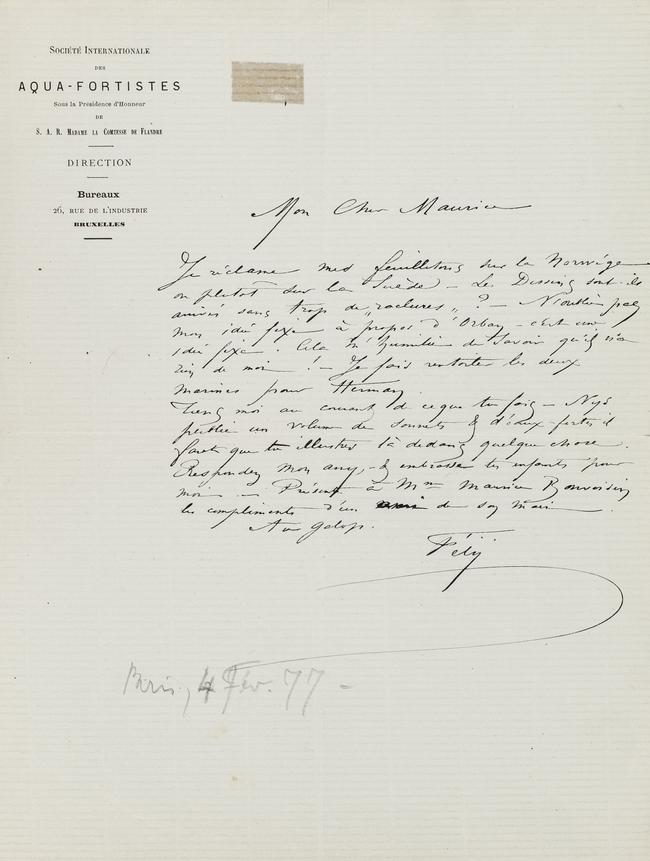 SOCIÉTÉ INTERNATIONALE
DES
AQUA-FORTISTES
Sous la Présidence d'Honneur
DE
S. A. R. MADAME LA COMTESSE DE FLANDRE
DIRECTION
Bureaux
26, RUE DE L'INDUSTRIE
BRUXELLES
Mon Cher Maurice
Je réclame mes feuilletons sur la Norwége
ou plutot sur la Suède – Les Dessins sont-ils
arrivés sans trop de „raclures" ? – N'oublie pas
mon idée fixe à propos d'Orban – c'est une
idée fixe. Cela m'humilie de savoir qu'il n'a
rien de moi ! – Je fais remonter les deux
marines pour Herman.
Tiens moi au courant de ce que tu fais – Nys
publie un volume de sonnets & d'eaux fortes il
faut que tu illustres là dedans quelque chose.
Respondez mon amy, & embrasse tes enfants pour
moi – Présente à Mme Maurice Bonvoisin
les compliments d'un de son mari.
Au galop.
Fély
4 Fév. 77 –